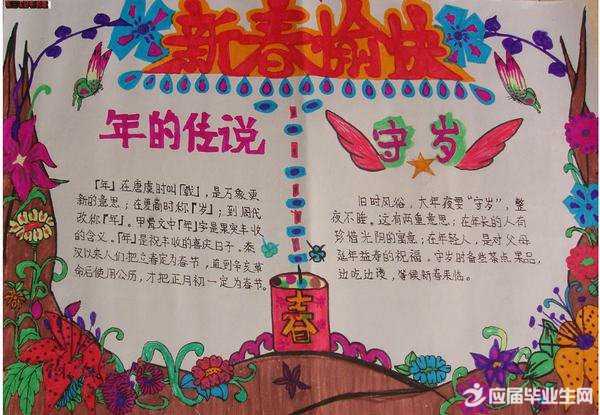 新春愉快
年的传说
「年」在唐虞时叫「载」，是万象更
新的意思；在夏商时称「岁」；到周代
改称「年」。甲骨文中「年」字是果实丰收
的含义。「年」是祝丰收的喜庆日子。秦
汉以来人们把立春定为春节，直到辛亥革
命后使用公历，才把正月初一定为春节。
守岁
旧时风俗，大年夜要“守岁”，整
夜不睡。这有两重意思：在年长的人有
珍惜光阴的寓意；在年轻人，是对父母
延年益寿的祝福。守岁时备些茶点果品，
边吃边谈，等候新春来临。
春
应届毕业生网